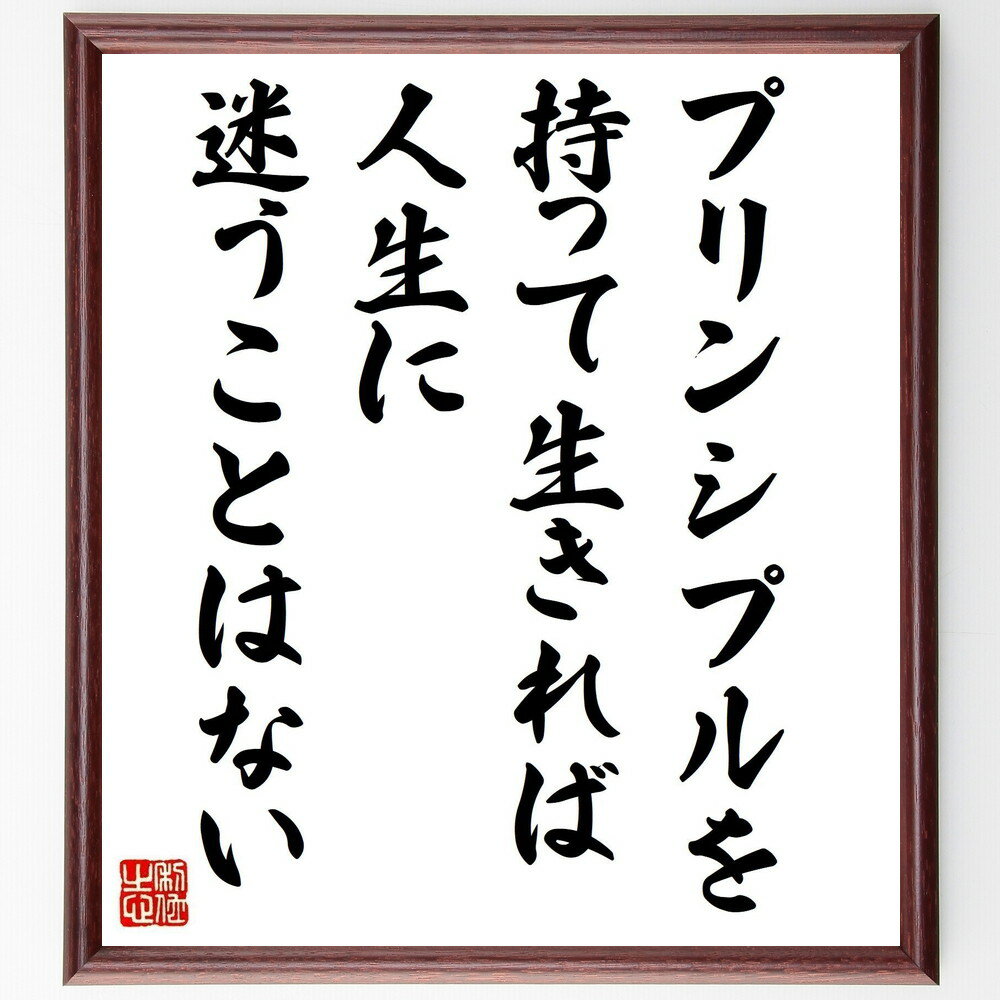 プリンシプルを
持って生きれば
人生に
迷うことはない